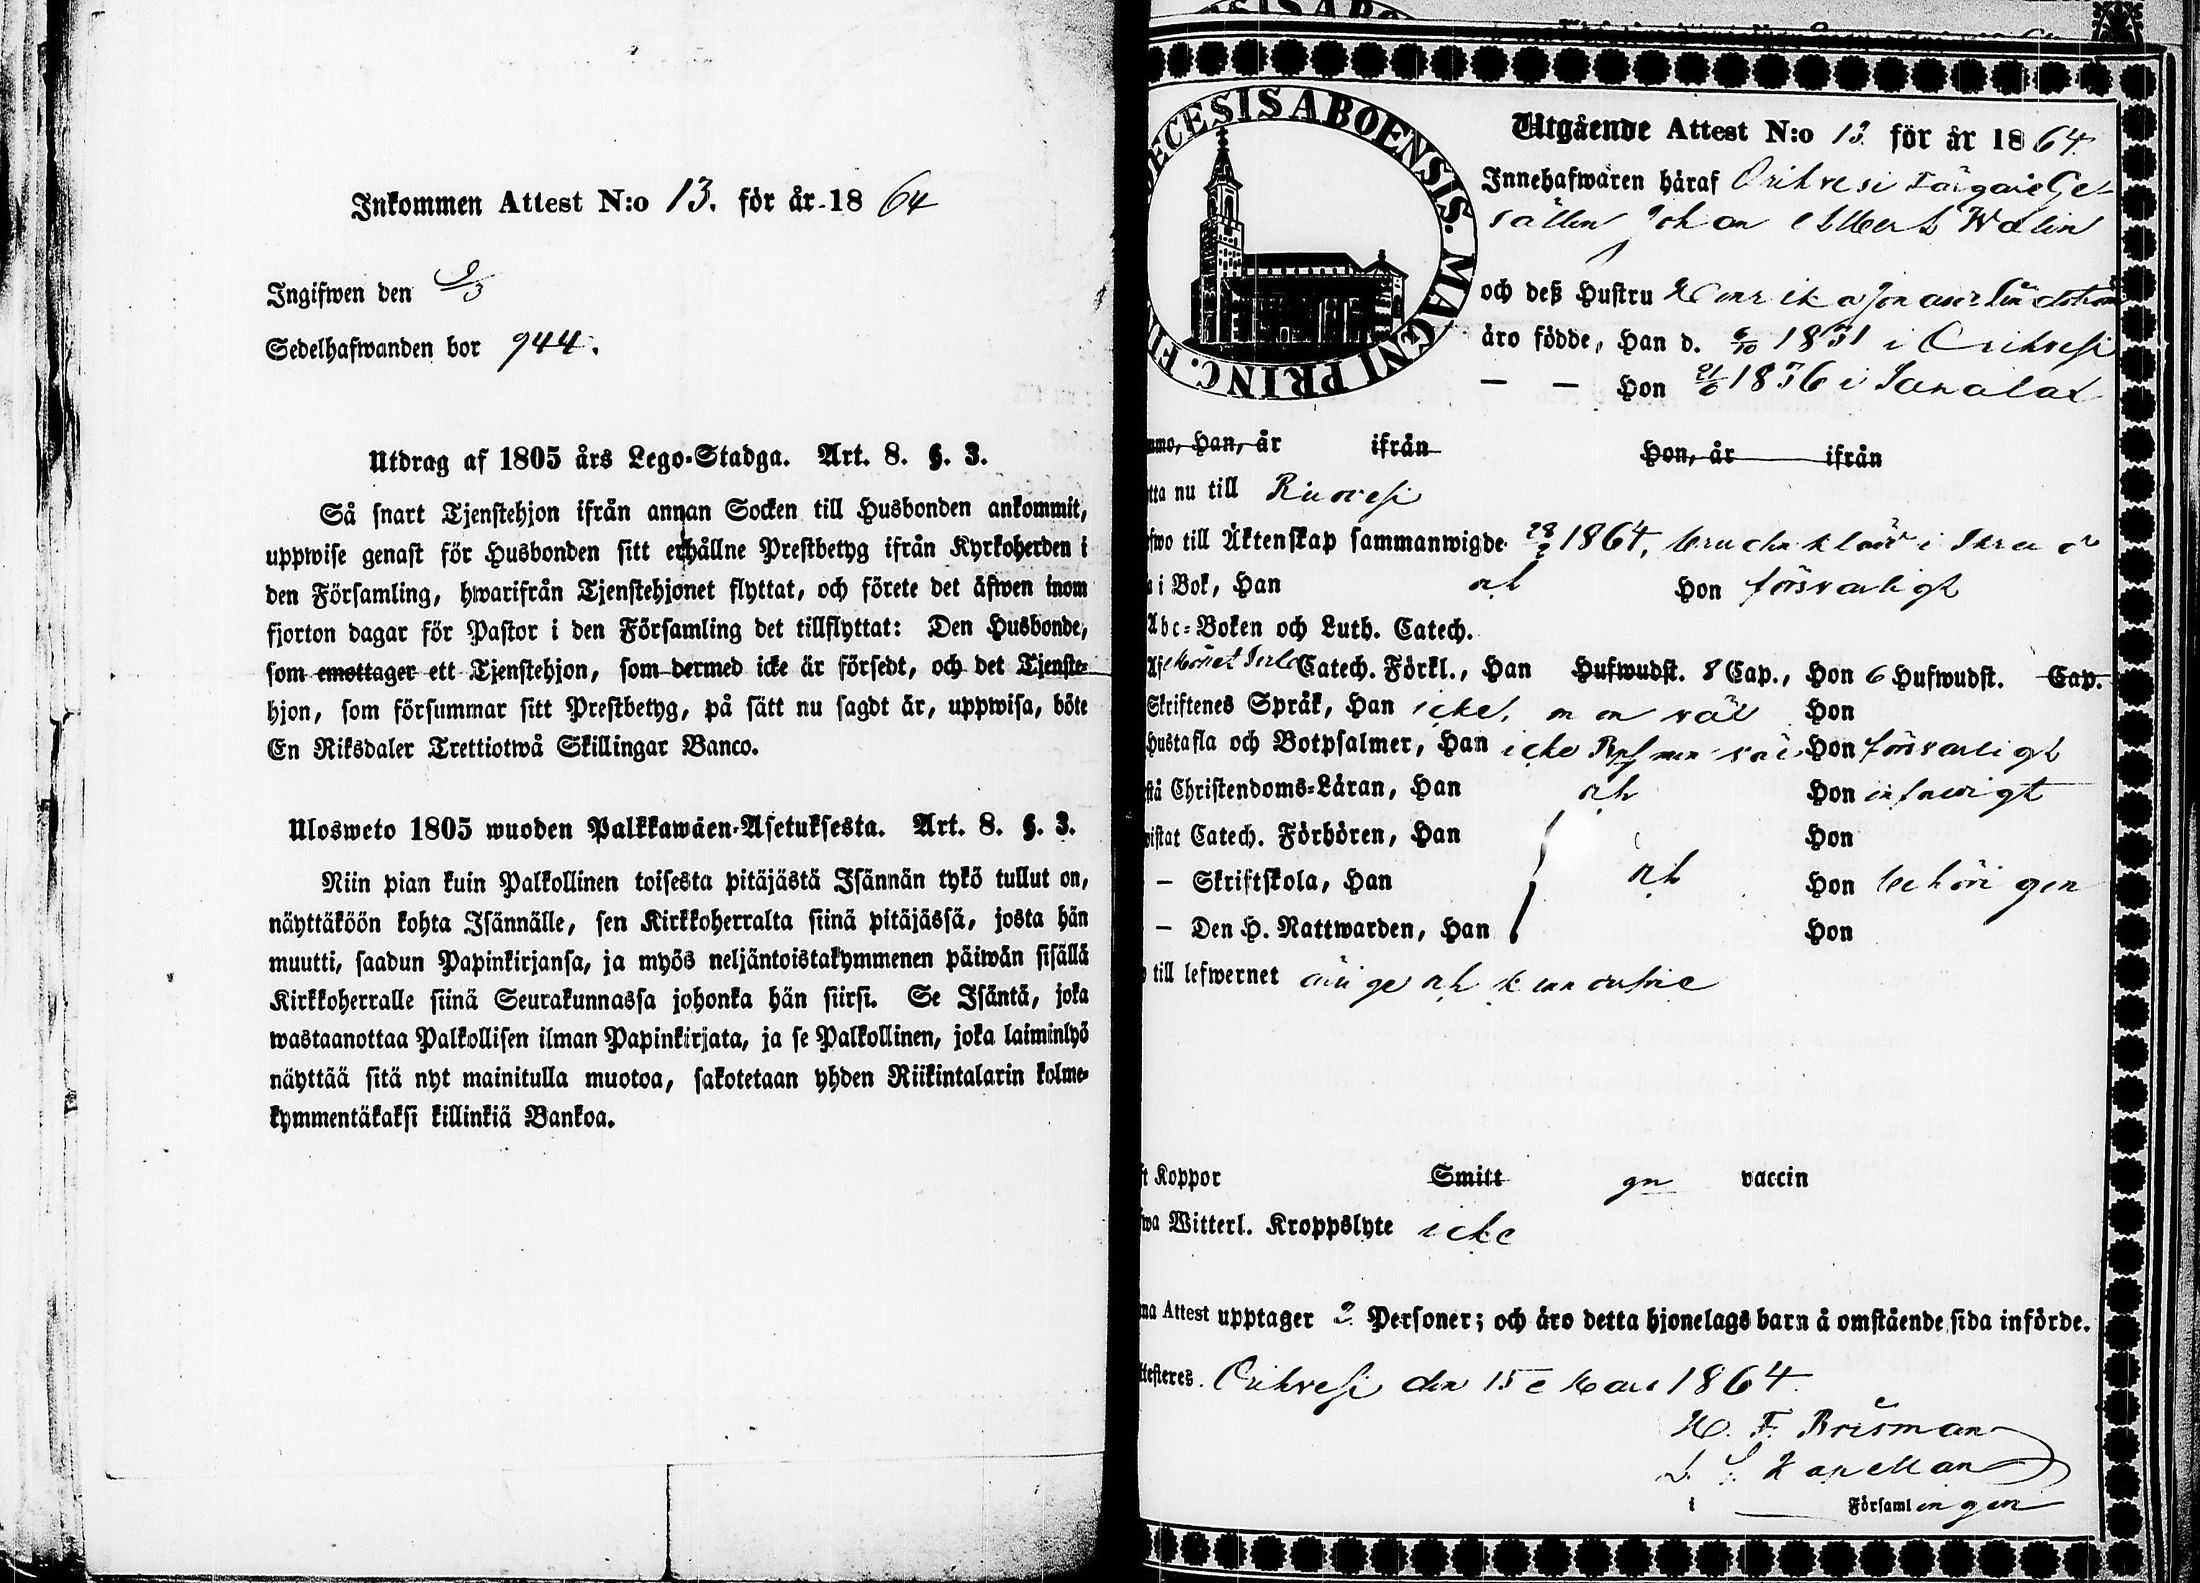 Inkommen Attest N:o 13. för år 1864
Ingifwen den
Sedelhafwanden bor 944.
Utdrag af 1805 års Lego-Stadga. Art. 8. §. 3.
Så snart Tjenstehjon ifrån annan Socken till Husbonden ankommit,
uppwise genast för Husbonden sitt erhållne Prestbetyg ifrån Kyrkoherden i
den Församling, hwarifrån Tjenstehjonet flyttat, och förete det äfwen inom
fjorton dagar för Pastor i den Församling det tillflyttat: Den Husbonde,
som emottager ett Tjenstehjon, som dermed icke är försedt, och det Tjenste-
hjon, som försummar sitt Prestbetyg, på sätt nu sagdt är, uppwisa, böte
En Riksdaler Trettiotwå Skillingar Banco.
Ulosweto 1805 wuoden Palkkawäen-Asetuksesta. Art. 8. §. 3.
Niin pian kuin Palkollinen toisesta pitäjästä Isännän tykö tullut on,
näyttäköön kohta Isännälle, sen Kirkkoherralta siinä pitäjässä, josta hän
muutti, saadun Papinkirjansa, ja myös neljäntoistakymmenen päiwän sisällä
Kirkkoherralle siinä Seurakunnassa johonka hän siirsi. Se Isäntä, joka
wastaanottaa Palkollisen ilman Papinkirjata, ja se Palkollinen, joka laiminlyö
näyttää sitä nyt mainitulla muotoa, sakotetaan yhden Riikintalarin kolme-
kymmentäkaksi killinkiä Bankoa.
ECESIS ABOENSIS. MAGNI PRINC. FI
Utgående Attest N:o 13. för år 1864.
Innehafwaren häraf Orihvesi Färgare Ge-
sällen Johan Walin
och deß Hustru Henrika
äro födde, Han d. 6/10 1831 i Orihvesi
— — Hon 1836 i
mmo, Han, år ifrån Hon, år ifrån
tta nu till Ruovesi
fwo till Äktenskap sammanwigde 1864,
i Bok, Han och Hon försvarligt
Abc-Boken och Luth. Catech.
Af Catech. Förkl., Han Hufwudst. 8 Cap., Hon 6 Hufwudst. Cap.
Skriftenes Språk, Han icke, Hon
Hustafla och Botpsalmer, Han icke Hon försvarligt
stå Christendoms-Läran, Han och Hon enfaldigt
wistat Catech. Förhören, Han Hon
— Skriftskola, Han och Hon behörigen
— Den H. Nattwarden, Han Hon
till lefwernet ärlige och
ft Koppor Smitt gm vaccin
fwa Witterl. Kroppslyte icke
na Attest upptager 2 Personer; och äro detta hjonelags barn å omstående sida införde.
ttesteres. Orihvesi den 15 Mars 1864.
H. F. Brisman
Kapellan
i — Församlingen